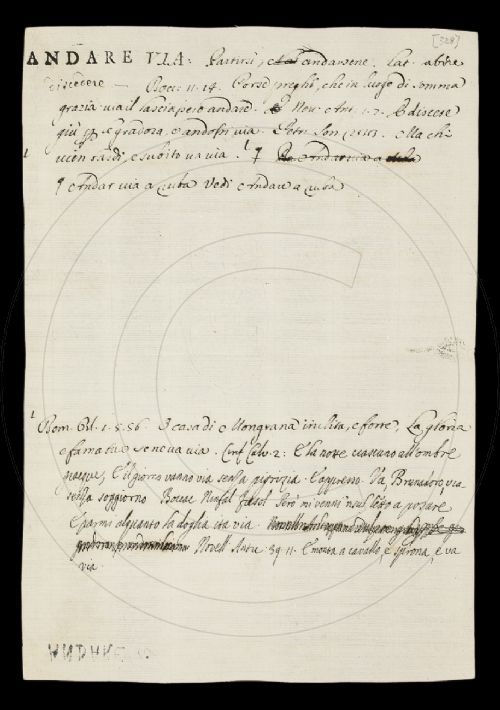 [328]
ANDARE VIA. Partirsi, andarsene. Lat. abire
discedere — Bocc. 11. 14. Porse preghi, che in luogo di somma
grazia via il lasciassero andare. Nov. Ant. 1. 2. A discere
giù se gradoza, e andossi via. Petr. Son. Ma chi
vien tardi, e subito va via. 1 ¶
¶ Andar via a ruba Vedi Andare a ruba
1 Bern. Orl. 1. 5. 56. I casa di Mongrana inclita, e forte, La gloria
e fama tua se ne va via. Ciriff. Calv. 2: E la notte ciascuno all'ombre
giacque, E 'l giorno vanno via senza pigrizia. E appresso. Va, Brunadoro, via
senza soggiorno Boccac. Ninfal. Fiesol. Però mi venni in sul letto a posare
E parmi alquanto la doglia ita via.
Novell. Antic. 59. 11. E monta a cavallo, e sprona, e va
via
ANDARE